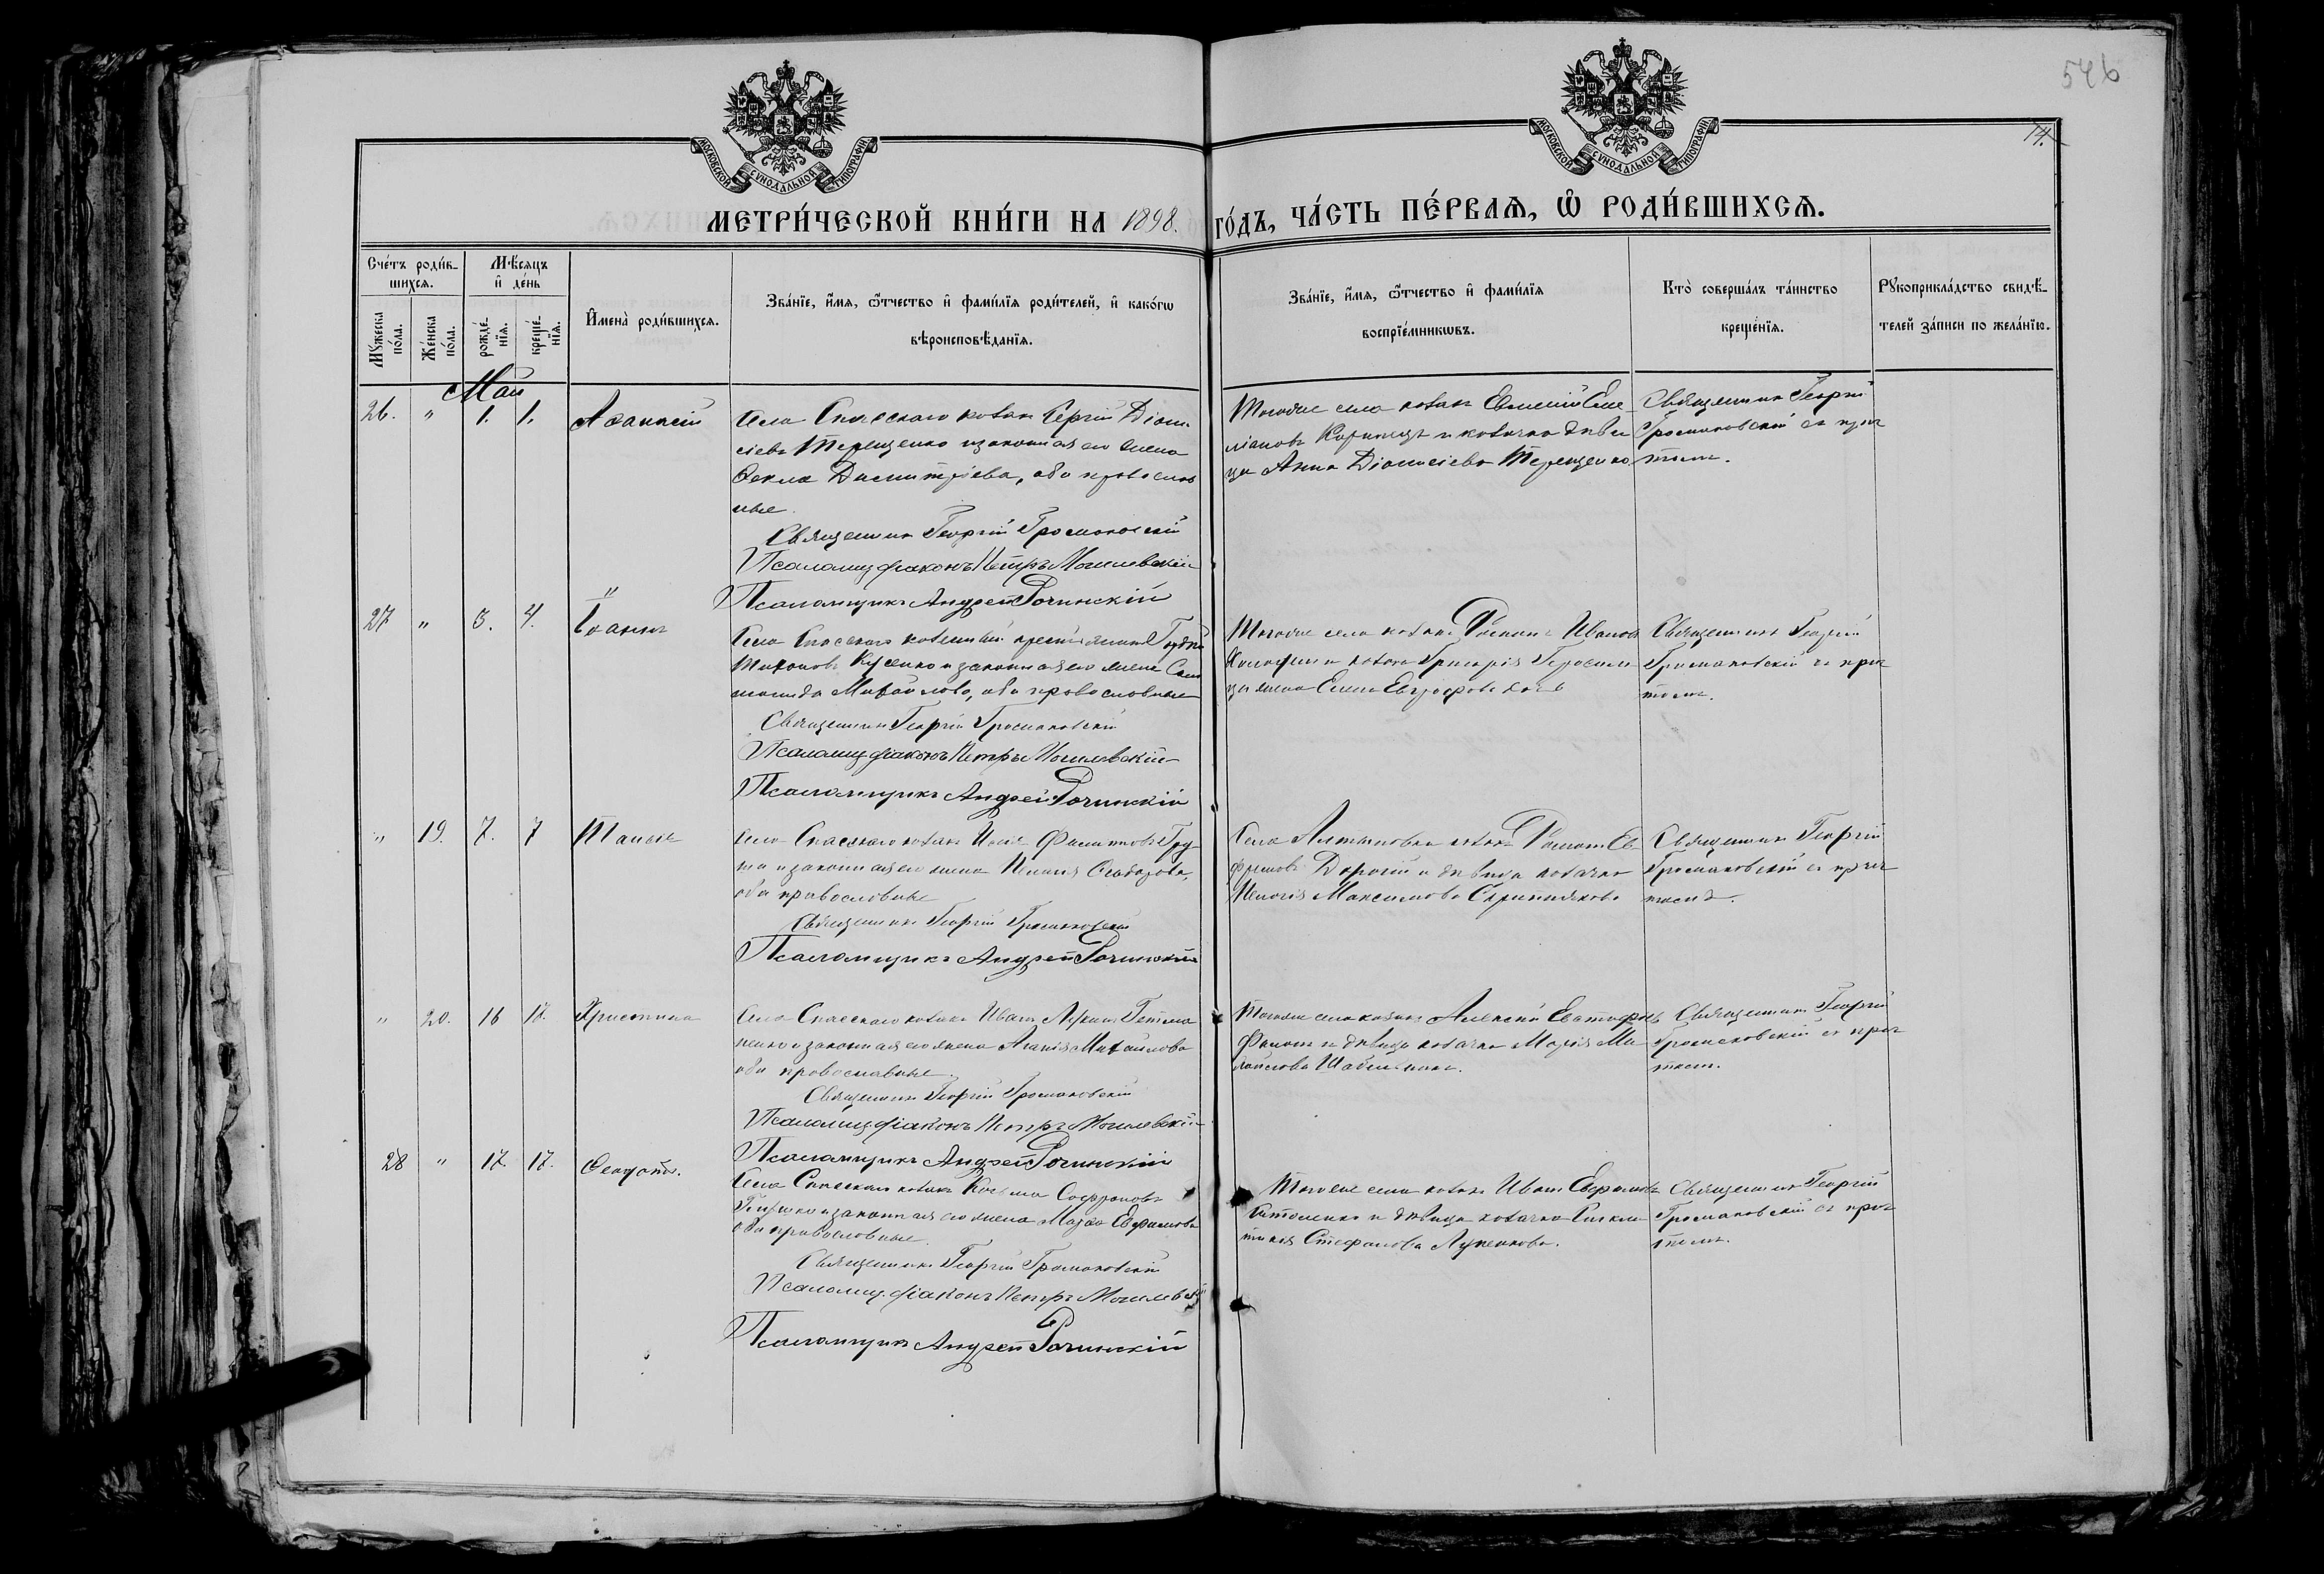 546
14.
МОСКОВСКОЙ СѴНОДАЛЬНОЙ ТИПОГРАФІИ
МОСКОВСКОЙ СѴНОДАЛЬНОЙ ТИПОГРАФІИ
МЕТРИ́ЧЕСКОЙ КНИ́ГИ НА 1898. ГО́ДЪ, ЧА́СТЬ ПЕ́РВАѦ, Ѽ РОДИ́ВШИХСѦ.
Сче́тъ роди́в-
шихсѧ.
Мѣ́сѧцъ
и҆ де́нь
Мꙋ́жеска по́ла.
Же́нска по́ла.
рожде́-
нїѧ.
креще́-
нїѧ.
И҆мена̀ роди́вшихсѧ.
Зва́нїе, и҆́мѧ, ѻ҆́тчество и҆ фами́лїѧ роди́телей, и҆ како́гѡ
вѣроисповѣ́данїѧ.
Зва́нїе, и҆́мѧ, ѻ҆́тчество и҆ фами́лїѧ
воспрїе́мникѡвъ.
Кто̀ соверша́лъ та́инство
креще́нїѧ.
Рꙋкоприкла́дство свидѣ́-
телей за́писи по жела́нїю.
Май
26. " 1. 1. Аѳанасій
Села Спасскаго козакъ Сергій Діони-
сіевъ Терещенко и законная его жена
Ѳекла Димитріева, оба православ
ные.
Священникъ Георгій Громаковскій
Псаломщ. діаконъ Петръ Могилевскій
Псаломщикъ Андрей Рочинскій
Тогоже села козакъ Евменій Еме-
ліановъ и козачка дѣви
ца Анна Діонисіева Терещенко
Священникъ Георгій
Громаковскій съ прич
томъ.
27 " 3. 4. Іоаннъ
Села Спасскаго
Тихоновъ и законная его жена Соло
монида Михайлова, оба православные
Священникъ Георгій Громаковскій
Псаломщ. діаконъ Петръ Могилевскій
Псаломщикъ Андрей Рочинскій
Тогоже села козакъ Романъ Ивановъ
и козака Григорія
жена Елена Евграфова
Священникъ Георгій
Громаковскій съ прич
томъ.
" 19. 7. 7 Таисія
Села Спасскаго козакъ Филипповъ
и законная его жена
оба православные
Священникъ Георгій Громаковскій
Псаломщикъ Андрей Рочинскій
Села козакъ Романъ Ев
фимовъ и дѣвица козачка
Максимова
Священникъ Георгій
Громаковскій съ прич
томъ.
" 20. 16 18. Христина
Села Спасскаго козакъ Иванъ Лукинъ Гетма
ненко и законная его жена Агапія Михайлова
оба православные.
Священникъ Георгій Громаковскій
Псаломщ. діаконъ Петръ Могилевскій
Псаломщикъ Андрей Рочинскій
Тогоже села козакъ Алексій
и дѣвица козачка Марія Ми
хайлова
Священникъ Георгій
Громаковскій съ прич
томъ.
28 " 17. 17. Ѳеодотъ.
Села Спасскаго козакъ Косьма Софроновъ
и законная его жена Марѳа Евфимова
оба православные.
Священникъ Георгій Громаковскій
Псаломщ. діаконъ Петръ Могилевскій
Псаломщикъ Андрей Рочинскій
Тогоже села козакъ Иванъ Евфимовъ
и дѣвица козачка Синкли
тикія Стефанова
Священникъ Георгій
Громаковскій съ прич
томъ.